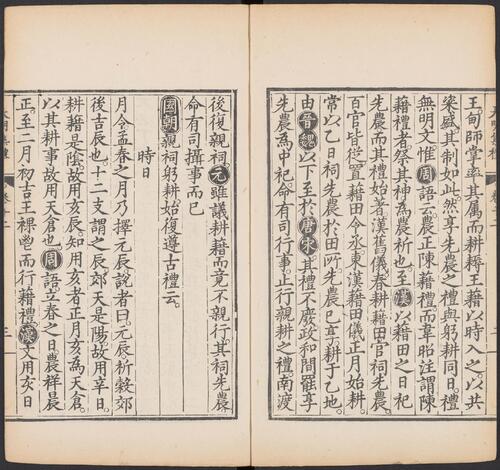 王甸師掌率其属而耕耨王藉以時入之以共
粢盛其制如此然享先農之禮與躬耕同日禮
無明文惟周語云農正陳藉禮而韋昭注謂陳
藉禮者祭其神為農祈也至漢以藉田之日祀
先農而其禮始著漢舊儀春耕藉田官祠先農
百官皆從置藉田令丞東漢藉田儀正月始耕
常以乙日祠先農於田所先農已享耕于乙地
由晉魏以下至於唐宋其禮不廢政和間罷享
先農為中祀命有司行事止行親耕之禮南渡
後復親祠元雖議耕藉而竟不親行其祠先農
命有司攝事而已
國朝親祠躬耕始復遵古禮云
時日
月令孟春之月乃擇元辰說者曰元辰祈穀郊
後吉辰也十二支謂之辰郊天是陽故用辛日
耕藉是陰故用亥辰知用亥者正月亥為天倉
以其耕事故用天倉也周語立春之日農祥晨
正至二月初吉王祼鬯而行藉禮漢文用亥日
大明集禮